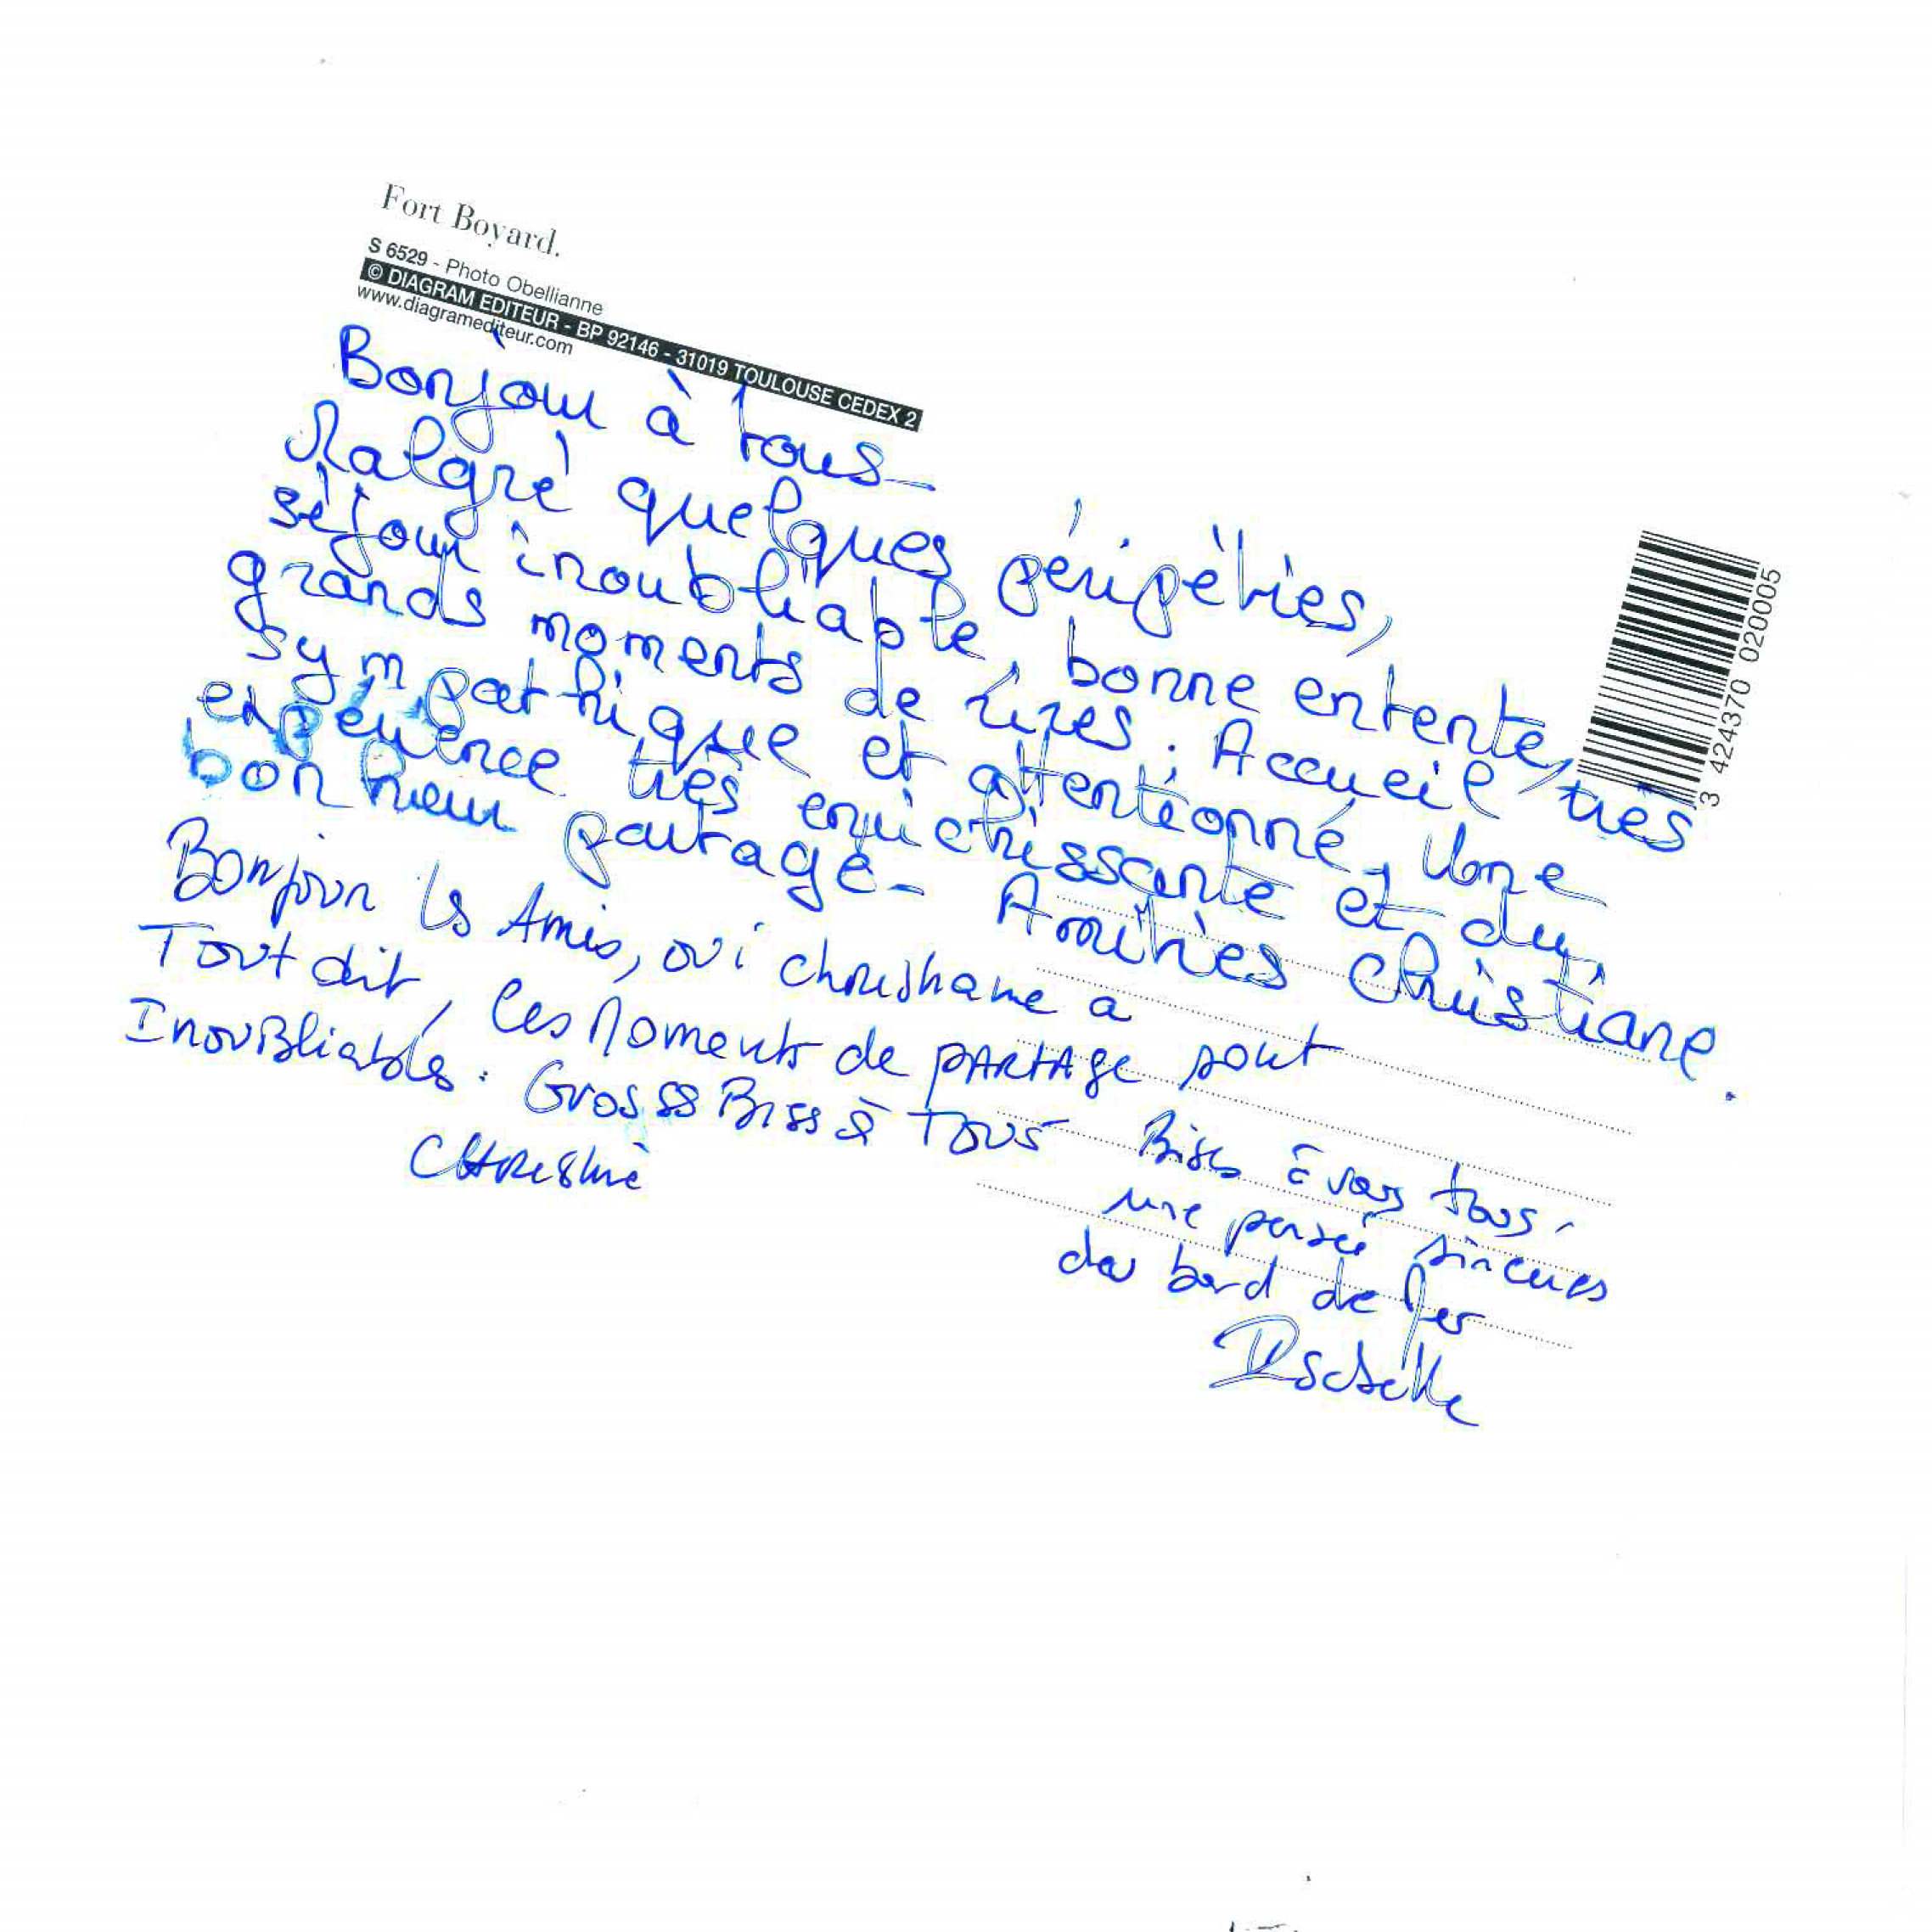 Fort Boyard.
S 6529 - Photo Obellianne
© DIAGRAM EDITEUR - BP 92146 - 31019 TOULOUSE CEDEX 2
www.diagramediteur.com
3 424370 020005
Bonjour à tous-
Malgré quelques péripéties,
séjour inoubliable, bonne entente,
grands moments de rires. Accueil très
sympathique et attentionné, Une
expérience très enrichissante et du
bonheur partagé- Amitiés Christiane.
Bonjour les Amis, oui christiane a
Tout dit, Ces Moments de PARTAge sont
InouBliables. Grosses Bises à Tous
CHRIstine
Bises à vous tous.
une pensée sincères
du bord de Mer